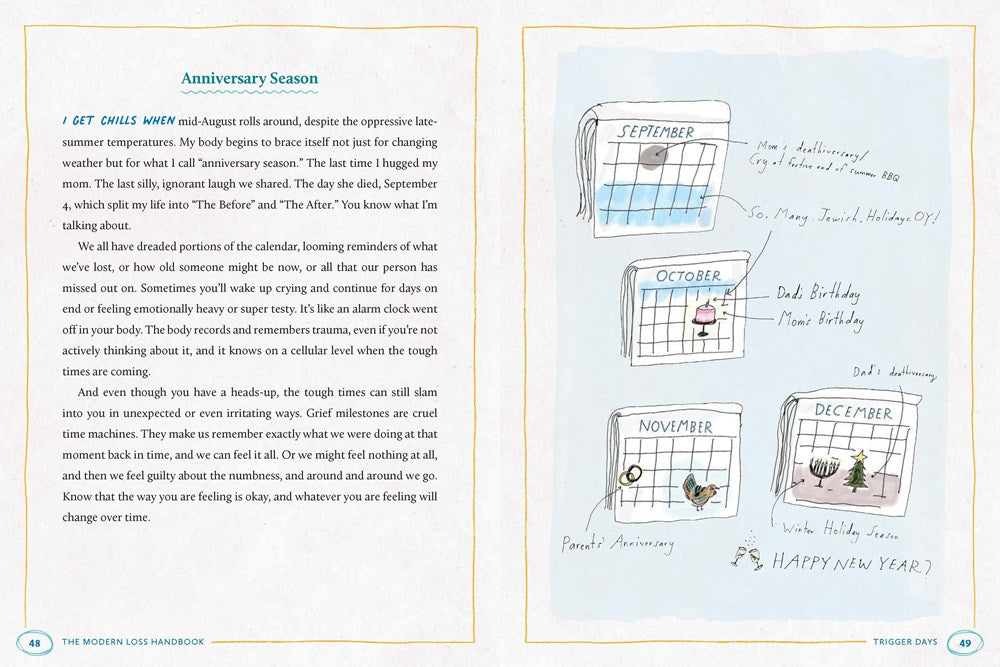 Anniversary Season
I GET CHILLS WHEN mid-August rolls around, despite the oppressive late-
summer temperatures. My body begins to brace itself not just for changing
weather but for what I call “anniversary season.” The last time I hugged my
mom. The last silly, ignorant laugh we shared. The day she died, September
4, which split my life into “The Before” and “The After.” You know what I’m
talking about.
We all have dreaded portions of the calendar, looming reminders of what
we’ve lost, or how old someone might be now, or all that our person has
missed out on. Sometimes you’ll wake up crying and continue for days on
end or feeling emotionally heavy or super testy. It’s like an alarm clock went
off in your body. The body records and remembers trauma, even if you’re not
actively thinking about it, and it knows on a cellular level when the tough
times are coming.
And even though you have a heads-up, the tough times can still slam
into you in unexpected or even irritating ways. Grief milestones are cruel
time machines. They make us remember exactly what we were doing at that
moment back in time, and we can feel it all. Or we might feel nothing at all,
and then we feel guilty about the numbness, and around and around we go.
Know that the way you are feeling is okay, and whatever you are feeling will
change over time.
48 THE MODERN LOSS HANDBOOK
SEPTEMBER
Mom's deathiversary/
Cry at festive end of summer BBQ
So. Many. Jewish. Holidays. OY!
OCTOBER
Dad's Birthday
Mom's Birthday
Dad's deathiversary
NOVEMBER
DECEMBER
Parents' Anniversary
Winter Holiday Season
HAPPY NEW YEAR?
TRIGGER DAYS 49